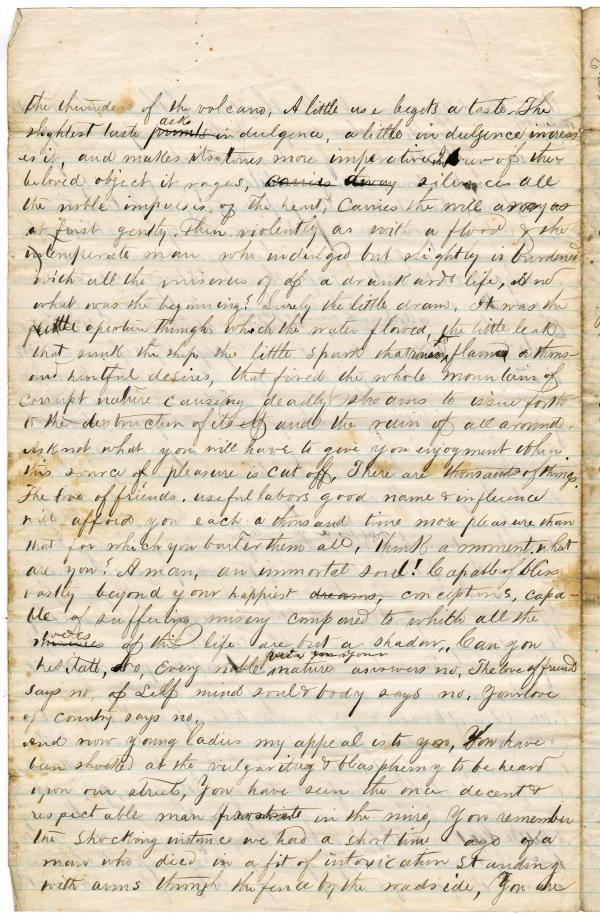 the thunders of the volcano, A little use begets a taste. The
slightest taste asks indulgence, a little indulgence increas
es it, and makes its tones more imperative, In view of the
beloved object it rages, carries away silences all
the noble impulses of the heart, Carries the will away as
at first gently. Then violently as with a flood & the
intemperate man who indulged but slightly is burdened
with all the miseries of of a drunkards life, And
what was the beginning? Surely the little dram. It was the
little aperture through which the water flowed, the little leak
that sunk the ship the little spark that flamed a thous-
and hurtful desires, that fired the whole mountain of
corrupt nature causing deadly streams to issue forth
to the destruction of itself and the ruin of all around.
Ask not what you will have to give you enjoyment when
this source of pleasure is cut off, There are thousands of things.
The love of friends. useful labors good name & influence
will afford you each a thousand time more pleasure than
that for which you barter them all, Think a moment, what
are you? A man, an immortal soul! Capable of bliss
vastly beyond your happiest dreams, conceptions, capa-
ble of suffering misery compared to which all the
woes of this life are but a shadow,, Can you
hesitate, no, Every noble nature answers no, The love of friends
says no, of Self mind soul & body says no, Your love
of country says no,,
And now young ladies my appeal is to you, You have
been shocked at the vulgarity & blasphemy to be heard
upon our streets, You have seen the once decent &
respectable man prostrate in the mire, You remember
the shocking instance we had a short time ago of a
man who died in a fit of intoxication standing
with arms through the fence by the roadside, You are